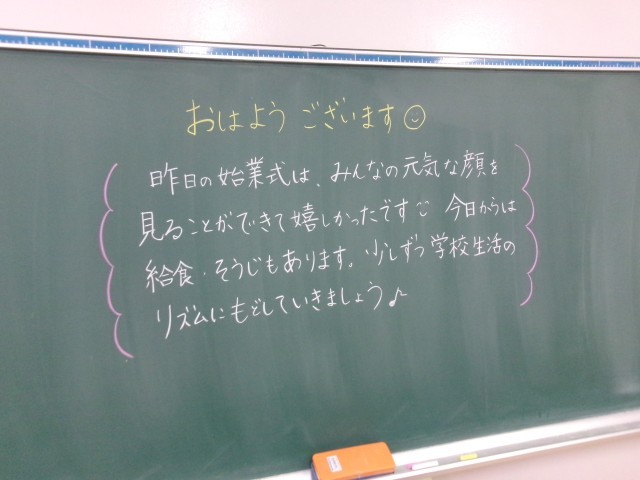 おはようございます☺
昨日の始業式は、みんなの元気な顔を
見ることができて嬉しかったです☺ 今日からは
給食・そうじもあります。少しずつ学校生活の
リズムにもどしていきましょう♪